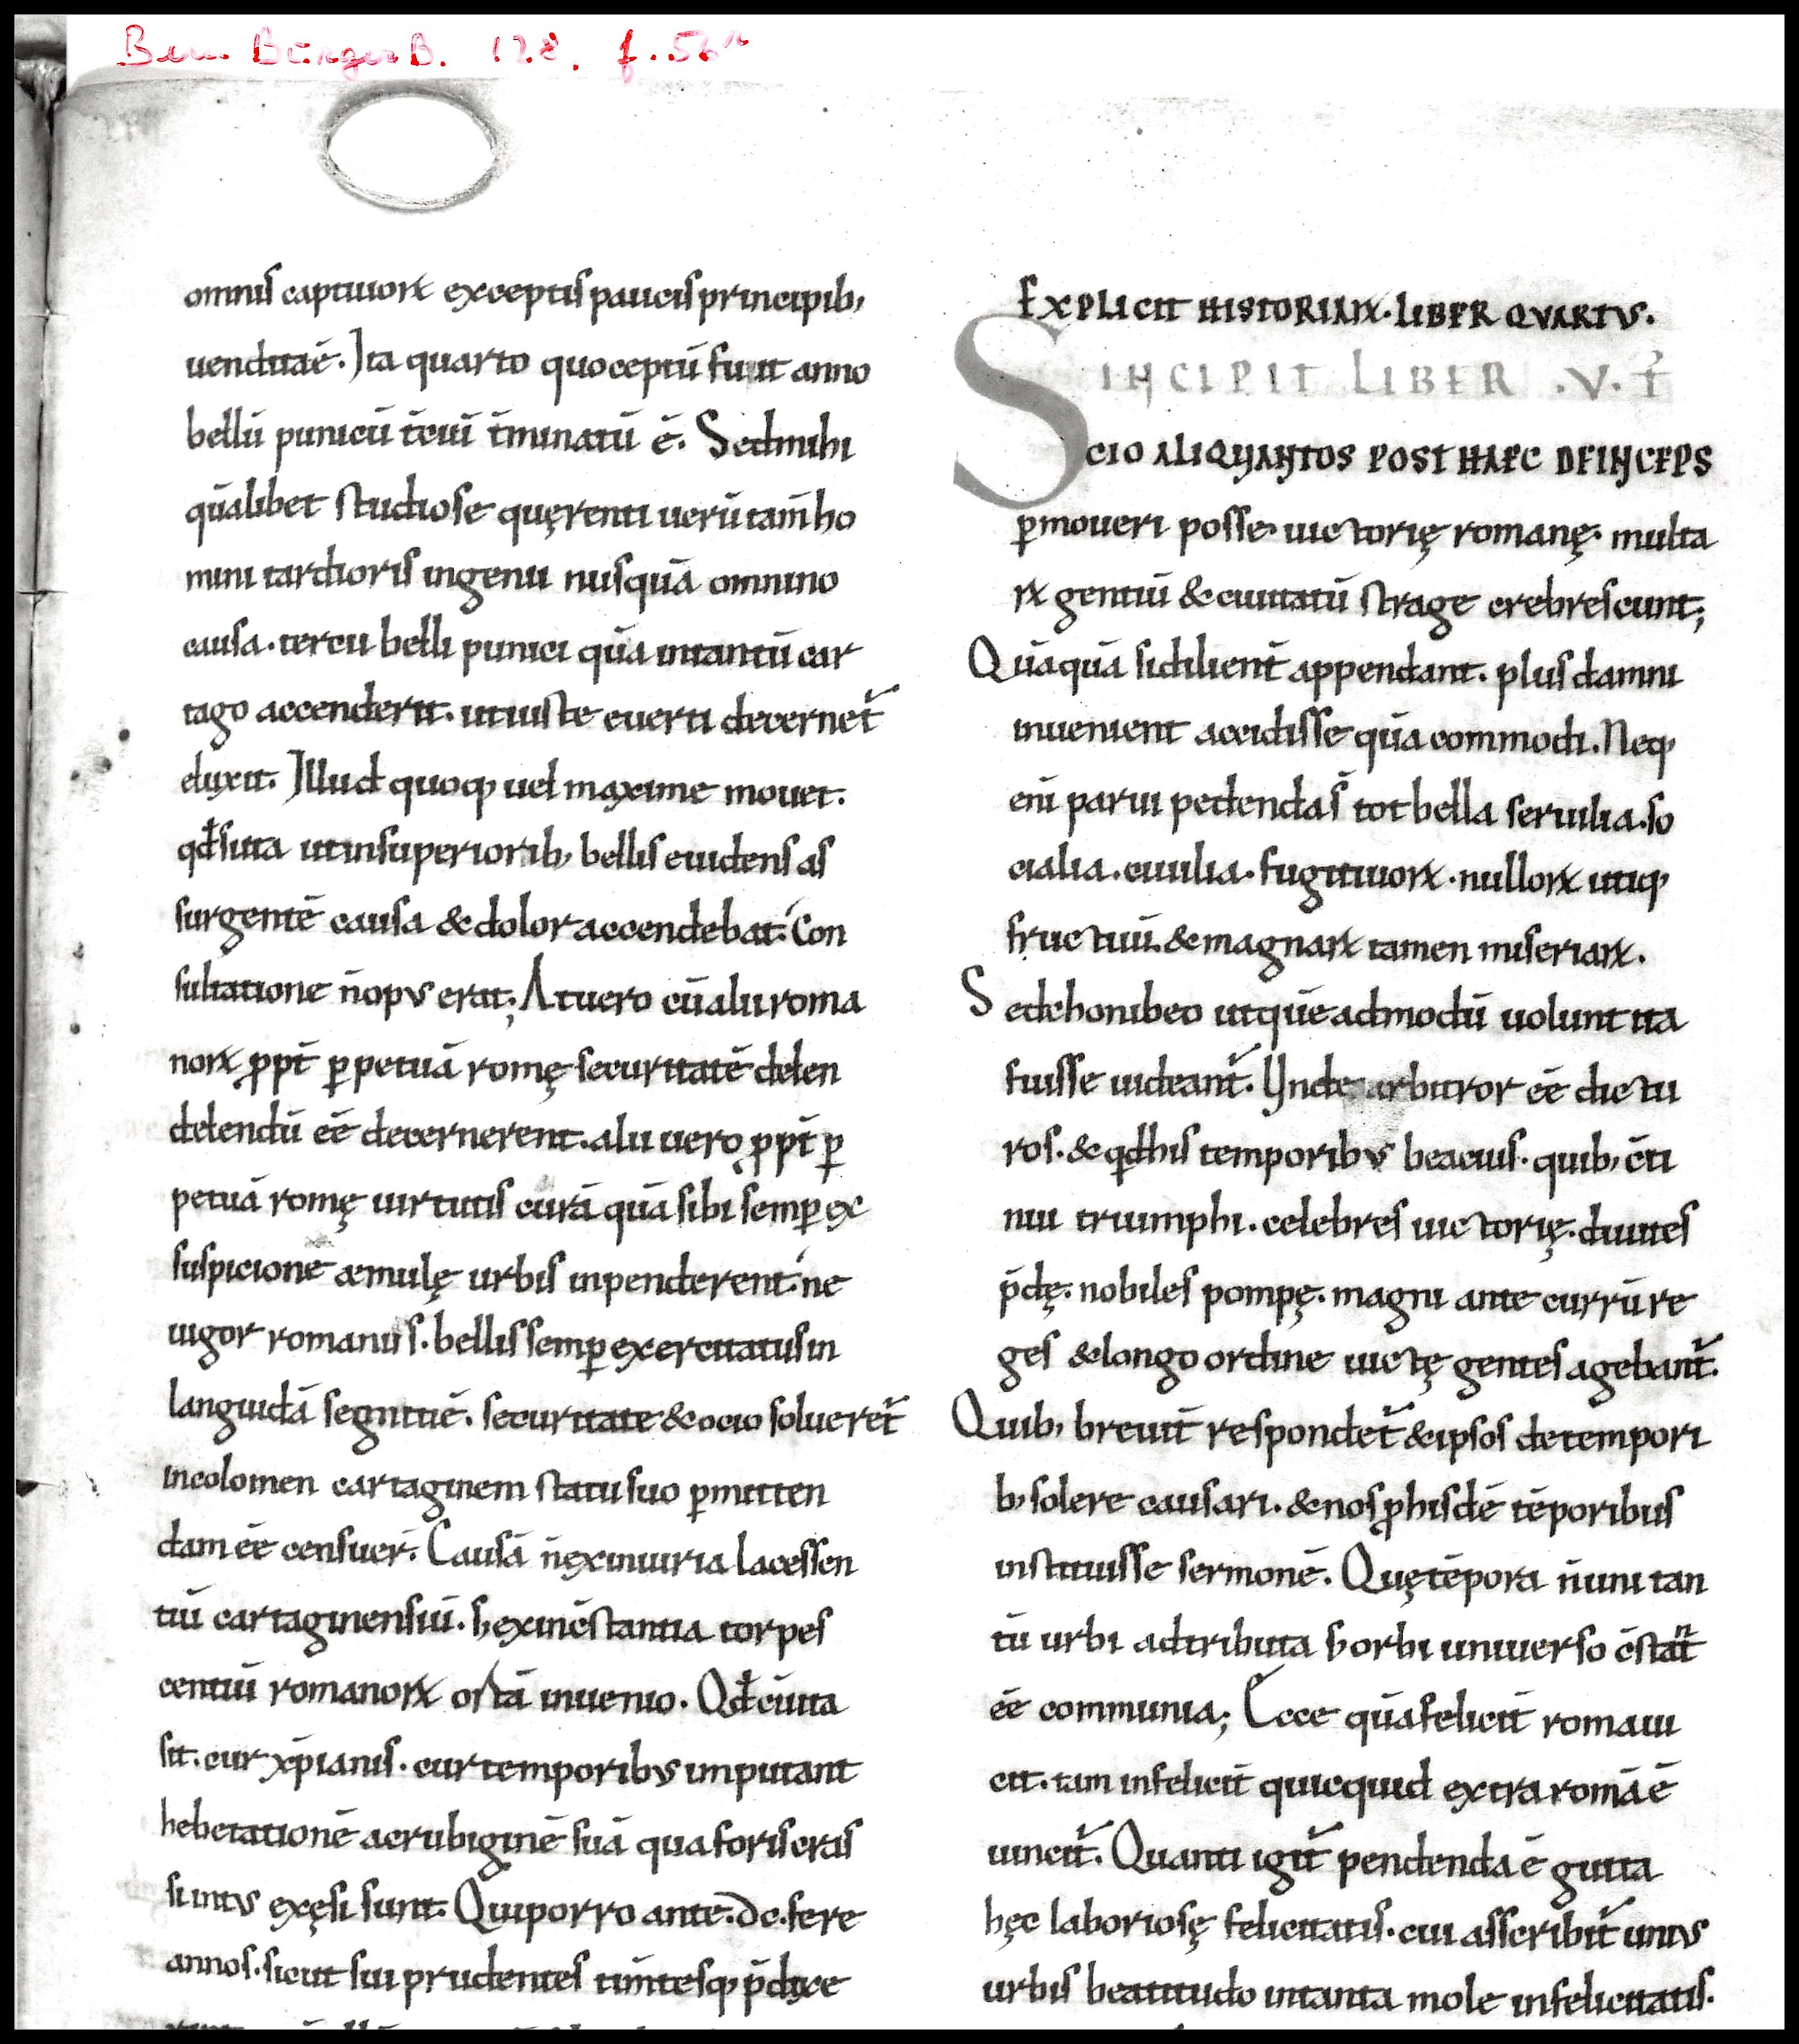 Bern BürgerB. 128. f. 56r
omnis captiuorꝝ exceptis paucis principib;
uendita ē. Ita quarto quo ceptū fuit anno
bellū punicū t̄ciū t̄minatū ē. Sed mihi
quālibet studiose quęrenti uerūtam̄ ho
mini tardioris ingenii nusquā omnino
causa. tercii belli punici quā intantū car
tago accenderit. ut iuste euerti decernet᷑
eluxit. Illud quoq; uel maxime mouet.
qđ si ita ut in superiorib; bellis euidens as
surgentē causa & dolor accendebat. Con
sultatione n̄ opus erat; At uero cū alii roma
norꝝ ꝓpt̄ ꝑpetuā romę securitatē delen
delendū eē decernerent. alii uero ꝓpt̄ ꝑ
petuā romę uirtutis curā quā sibi semꝑ ex
suspicione æmulę urbis inpenderent. ne
uigor romanus. bellis semꝑ exercitatus in
languidā segnitiē. securitate & ocio solueret᷑
incolomen cartaginem statu suo ꝑmitten
dam eē censuer̄. Causā n̄ ex iniuria lacessen
tiū cartaginensiū. s; ex incstantia torpes
centiū romanorꝝ ortā inuenio. Qđ cū ita
sit. cur xp̄ianis. cur temporibus imputant
hebetationē ac rubiginē suā qua foris cras
si intus exęsi sunt. Qui porro ante. dc. fere
annos. sicut sui prudentes tim̄tesq; p̄dixe
EXPLICIT HISTORIARꝝ. LIBER QVARTVS.
INCIPIT LIBER .V. T
SCIO ALIQUANTOS POST HAEC DEINCEPS
ꝑmoueri posse. uictorię romanę. multa
rꝝ gentiū & ciuitatū strage crebrescunt;
Quāquā si dilient̄ appendant. plus damni
inuenient accidisse quā commodi. Neq;
enī parui pedenda s̄ tot bella seruilia. so
cialia. ciuilia. fugitiuorꝝ. nullorꝝ utiq;
fructuū. & magnarꝝ tamen miseriarꝝ.
Sed chonibeo ut quēadmodū uolunt ita
fuisse uideant᷑. Unde arbitror eē dictu
ros. & qđ his temporibus beacius. quib; c̄ti
nui triumphi. celebres uictorię. diuites
p̄dę. nobiles pompę. magni ante currū re
ges & longo ordine uictę gentes agebant᷑.
Quib; breuit̄ respondet᷑ & ipsos de tempori
b; solere causari. & nos ꝓ hisdē tēporibus
instituisse sermonē. Quę tēpora n̄ uni tan
tū urbi adtributa s; orbi uniuerso c̄stat
eē communia; Ecce quā felicit̄ roma ui
cit. tam infelicit̄ quicquid extra romā ē
uincit᷑. Quanti igit᷑ pendenda ē gutta
hęc laboriosę felicitatis. cui asscribit᷑ unius
urbis beatitudo in tanta mole infelicitatis.